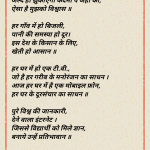 ऐसा है मुझको विश्वास ॥
हर गाँव में हो बिजली,
पानी की समस्या हो दूर।
इस देश के किसान के लिए,
खेती हो आसान ॥
हर घर में हो एक टी.वी.,
जो है हर गरीब के मनोरंजन का साधन।
आज हर घर में है एक मोबाइल फ़ोन,
हर घर के दूरसंचार का साधन ॥
पुरे विश्व की जानकारी,
देने वाला इंटरनेट।
जिससे विद्यार्थी को मिले ज्ञान,
बनाये उन्हें प्रतिभावान ॥